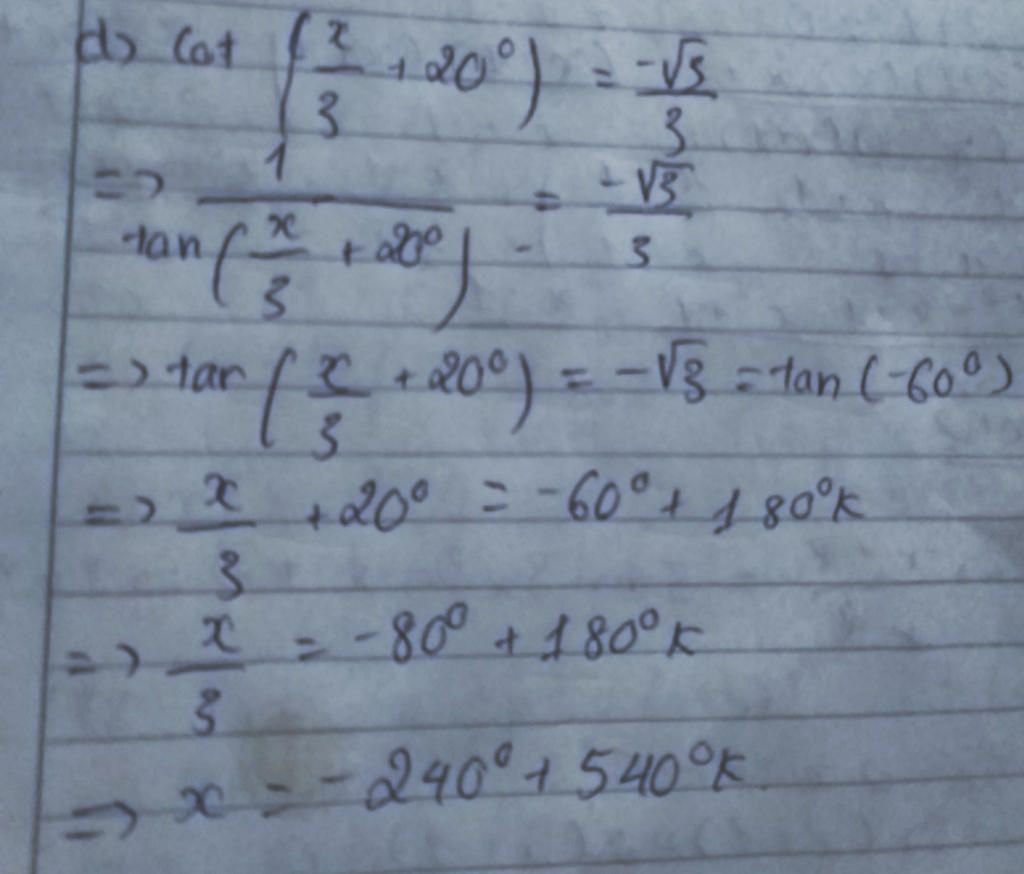 d) Cot (x/3 + 20°) = -√3/3
=> 1/tan(x/3 + 20°) = -√3/3
=> tan (x/3 + 20°) = -√3 = tan (-60°)
=> x/3 + 20° = -60° + 180°K
=> x/3 = -80° + 180°K
=> x = -240° + 540°K